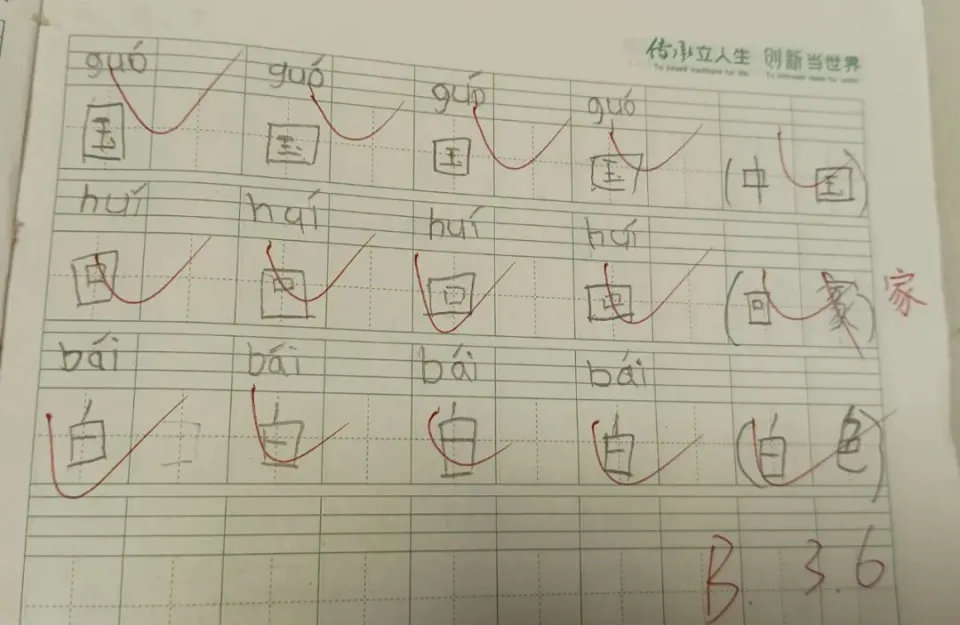 传承立人生 创新当世界
guó guó guó guó
国 国 国 国 (中国)
huí huí huí huí
回 回 回 回 (回家) 家
bái bái bái bái
白 白 白 白 (白色)
B. 3.6